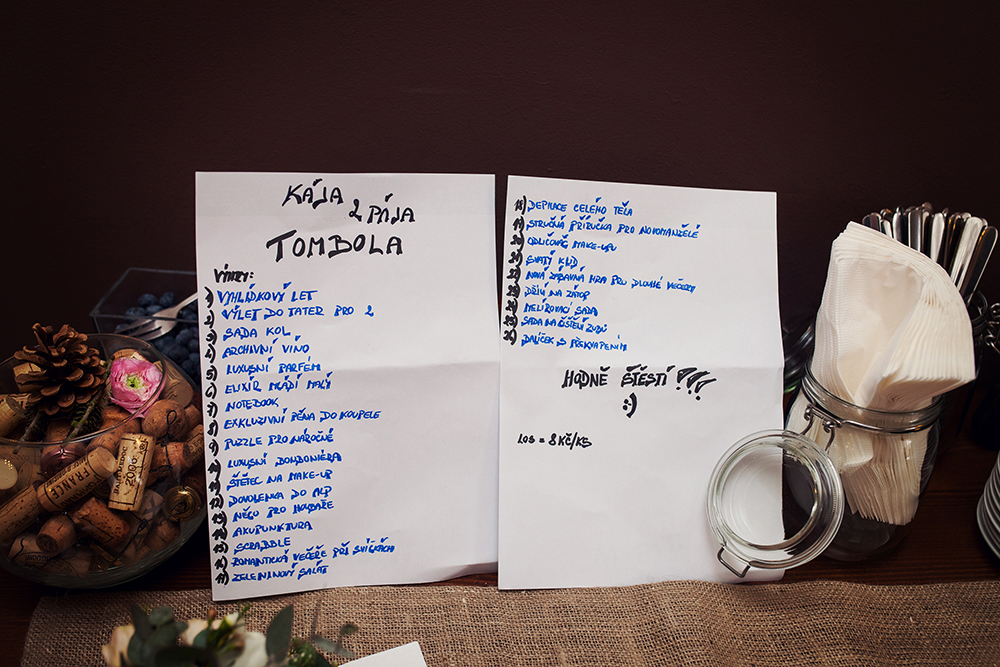 KÁJA
& PÁJA
TOMBOLA
VÝHRY:
1) VYHLÍDKOVÝ LET
2) VÝLET DO TATER PRO 2
3) SADA KOL
4) ARCHIVNÍ VÍNO
5) LUXUSNÍ PARFÉM
6) ELIXÍR MLÁDÍ MALÝ
7) NOTEBOOK
8) EXKLUZIVNÍ PĚNA DO KOUPELE
9) PUZZLE PRO NÁROČNÉ
10) LUXUSNÍ BONBONIÉRA
11) ŠTĚTEC NA MAKE-UP
12) DOVOLENKA DO ALP
13) NĚCO PRO HOUBAŘE
14) AKUPUNKTURA
15) SCRABBLE
16) ROMANTICKÁ VEČEŘE PŘI SVÍČKÁCH
17) ZELENINOVÝ SALÁT
18) DEPILACE CELÉHO TĚLA
19) STRUČNÁ PŘÍRUČKA PRO NOVOMANŽELÉ
20) ODLIČOVAČ MAKE-UPU
21) SVATÝ KLID
22) NOVÁ ZÁBAVNÁ HRA PRO DLOUHÉ VEČERY
23) DŘÍVÍ NA ZÁTOP
24) MELÍROVACÍ SADA
25) SADA NA ČIŠTĚNÍ ZUBŮ
26) BALÍČEK S PŘEKVAPENÍM
HODNĚ ŠTĚSTÍ !!!
:)
LOS = 8 KČ/KS
FRANCE